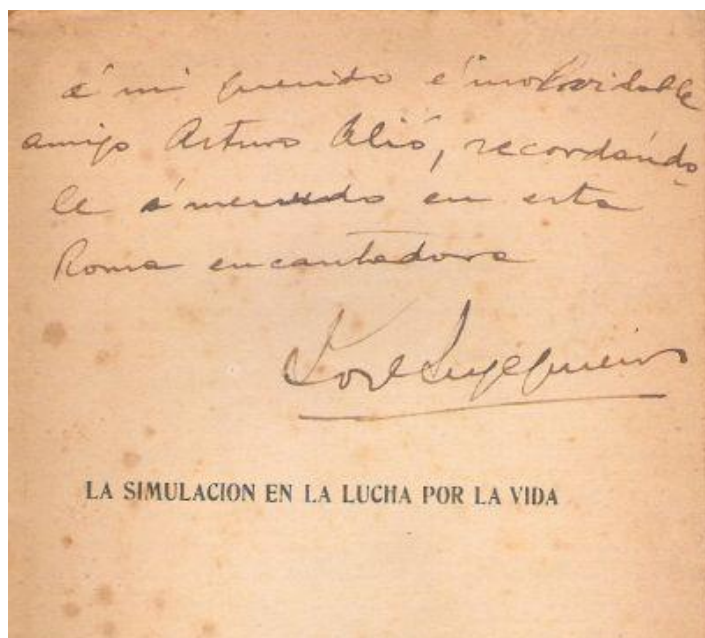 á mi querido é inolvidable
amigo Arturo Alió, recordándo-
le á menudo en esta
Roma encantadora
José Ingegnieros
LA SIMULACION EN LA LUCHA POR LA VIDA